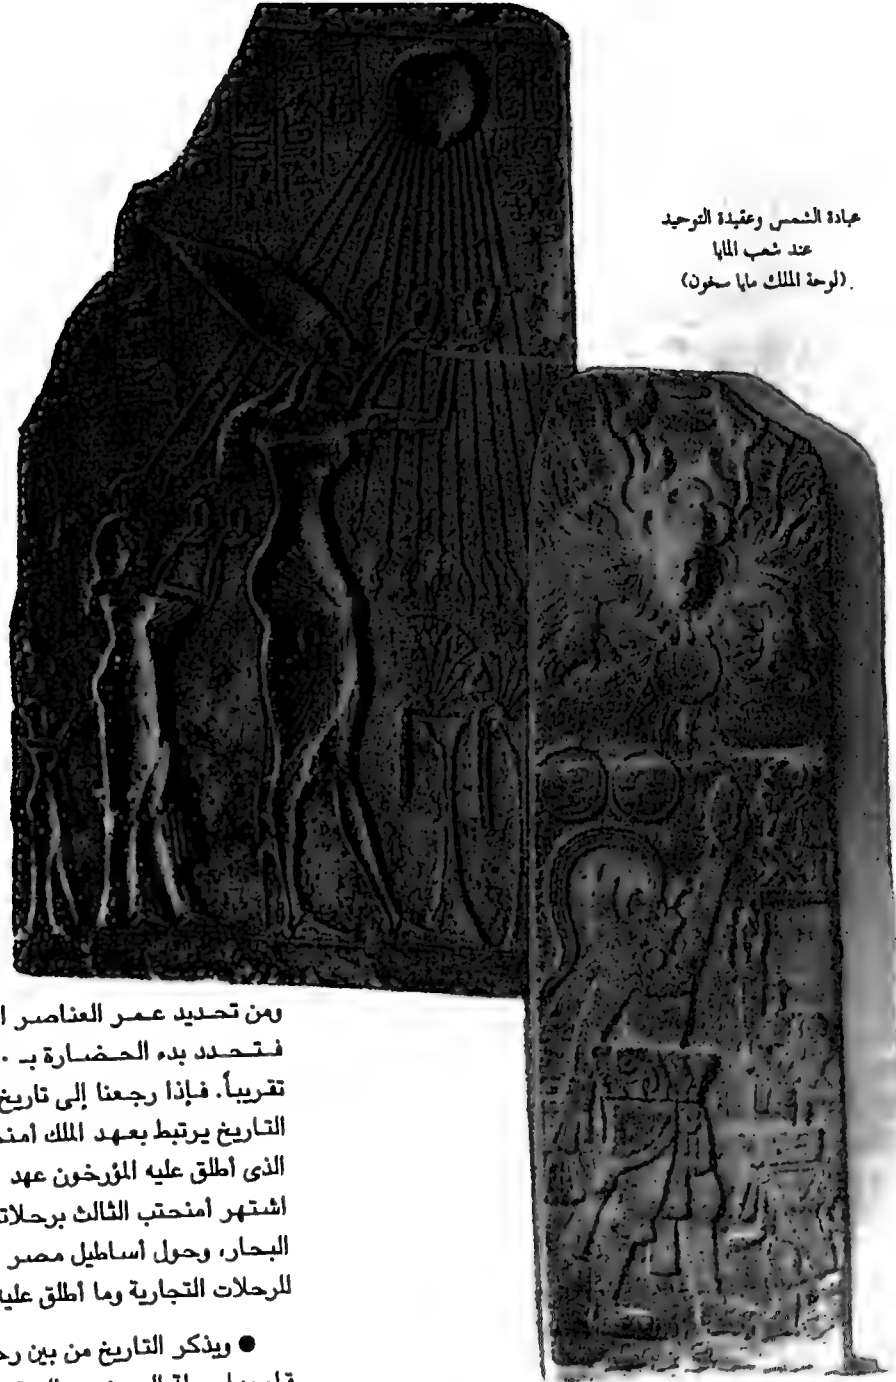 عبادة الشمس وعقيدة التوحيد
عند شعب المايا
(لوحة الملك مايا سخون).
ومن تحديد عمر العناصر
فتحدد بدء الحضارة بـ
تقريباً. فإذا رجعنا إلى تاريخ
التاريخ يرتبط بعهد الملك
الذى أطلق عليه المؤرخون عهد
اشتهر أمنحتب الثالث
البحار، وحول أساطيل مصر
للرحلات التجارية وما أطلق
● ويذكر التاريخ من بين